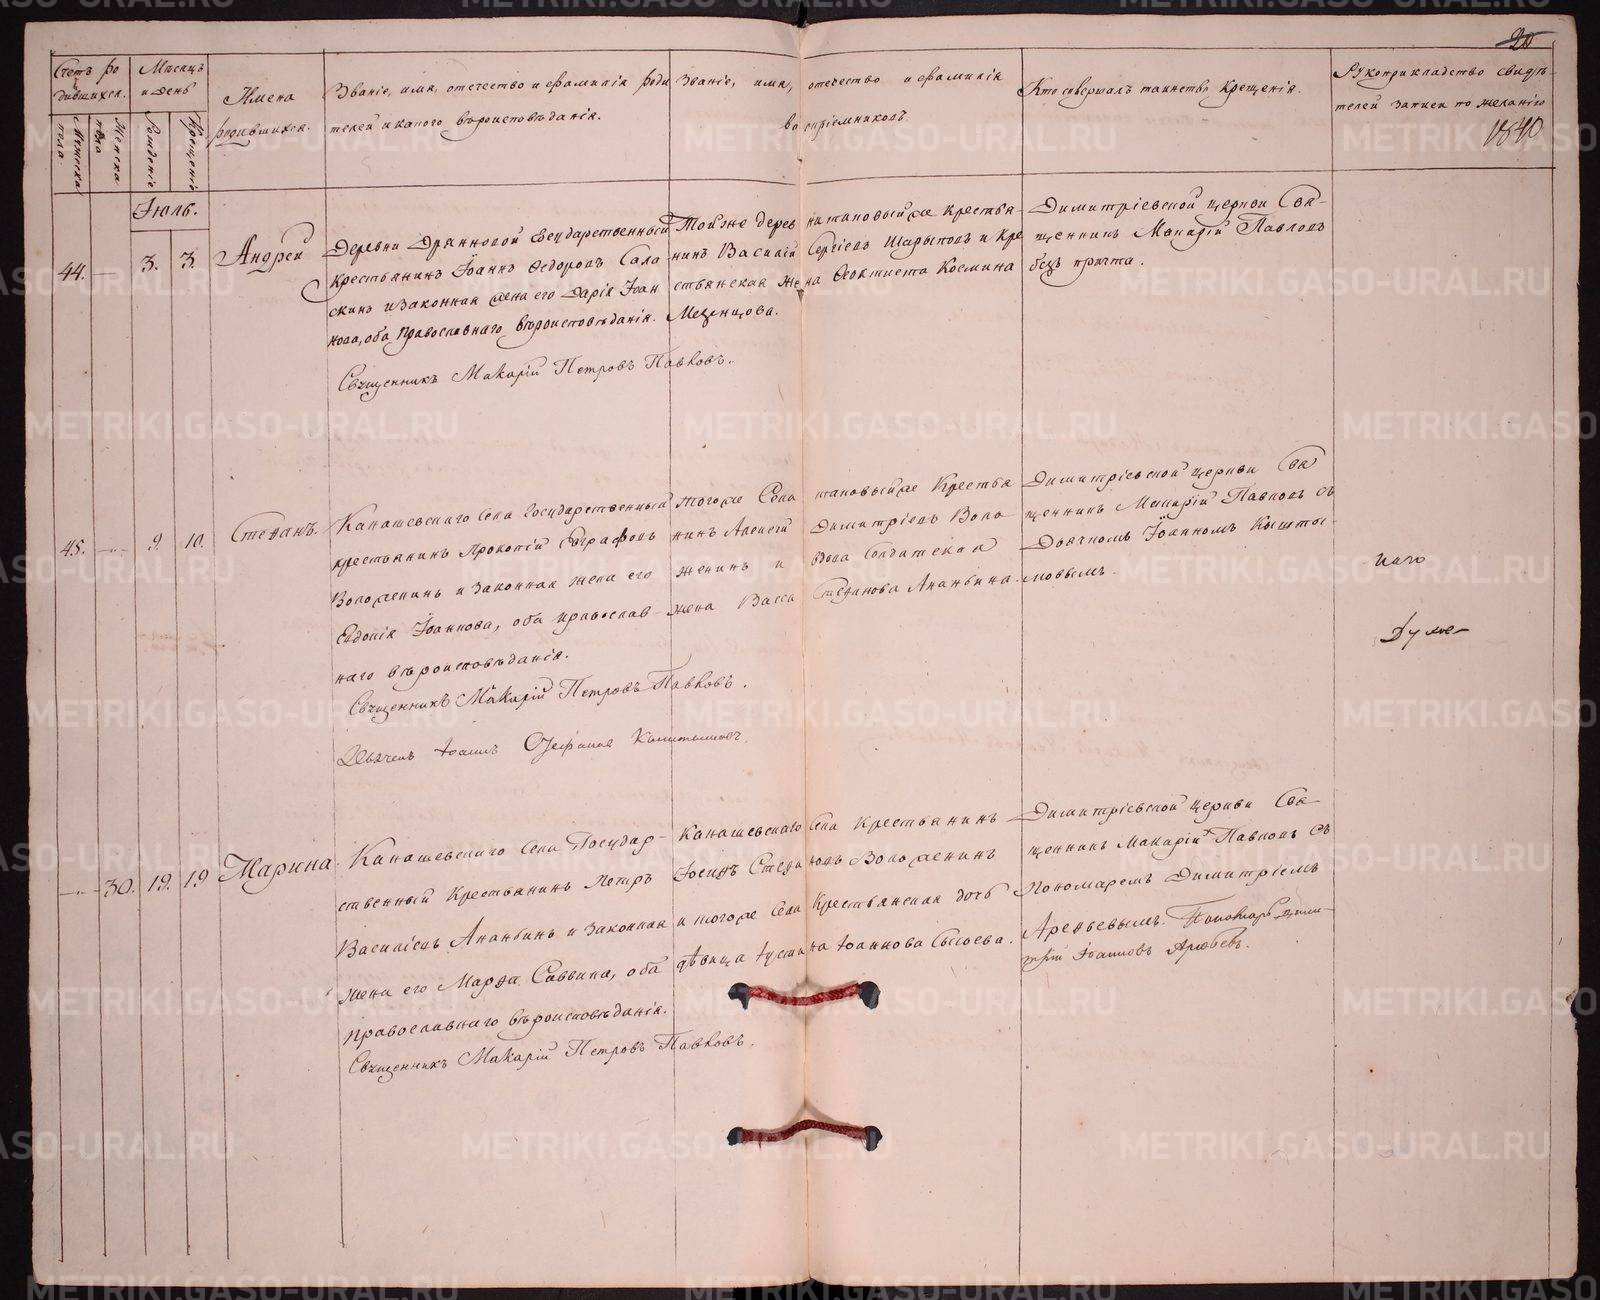 20
Счетъ ро
дившихся.
Мѣсяцъ
и день
Имена
родившихся.
Званіе, имя, отечество и фамилія роди
телей и какого вѣроисповѣданія.
Званіе, имя, отечество и фамилія
воспріемниковъ
Кто совершалъ таинство крещенія.
Рукоприкладство свидѣ-
телей записи по желанію
1840
Мужеска
пола.
Женска
пола
Рожденіе
Крещеніе
Іюль.
44. — 3. 3. Андрей
Деревни Дрянновой Государственный
крестьянинъ Іоаннъ Ѳедоровъ Сала
скинъ и законная жена его Дарія Іоан
нова, оба православнаго вѣроисповѣданія.
Священникъ Макарій Петровъ Павковъ.
Той же дерев
нинъ Василій Сергіевъ Шарыповъ и кре
стьянская жена Ѳеоктиста Космина
Мезенцова.
Димитріевской церкви Свя-
щенникъ Макарій Павловъ
безъ причта.
45. — 9. 10. Стефанъ.
Канашевскаго села Государственный
крестьянинъ Прокопій Евграфовъ
Воложенинъ и законная жена его
Евдокія Іоаннова, оба православ-
наго вѣроисповѣданія.
Священникъ Макарій Петровъ Павковъ.
Дьячекъ Іоаннъ Стефановъ
того же Села
нинъ Алексій Димитріевъ Воло
женинъ и вдова солдатская
жена Васса Стефанова Ананьина.
Димитріевской церкви Свя
щенникъ Макарій Павловъ съ
Дьячкомъ Іоанномъ Кышты-
мовымъ.
— 30. 19. 19 Марина
Канашевскаго села Государ-
ственный крестьянинъ Петръ
Василіевъ Ананьинъ и законная
жена его Марѳа Саввина, оба
православнаго вѣроисповѣданія.
Священникъ Макарій Петровъ Павковъ.
Канашевскаго Села крестьянинъ
Іосифъ Стефановъ Воложенинъ
и того же села крестьянская дочь
дѣвица Іустина Іоаннова Сысоева.
Димитріевской церкви Свя-
щенникъ Макарій Павловъ съ
Пономаремъ Димитріемъ
Арефьевымъ. Пономарь Дими-
трій Іоанновъ Арефьевъ.
METRIKI.GASO-URAL.RU